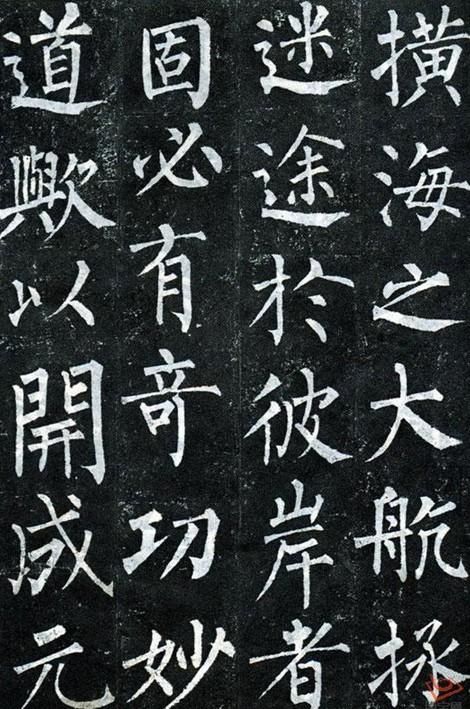 撗海之大航拯
迷途扵彼岸者
固必有竒功妙
道歟以開成元